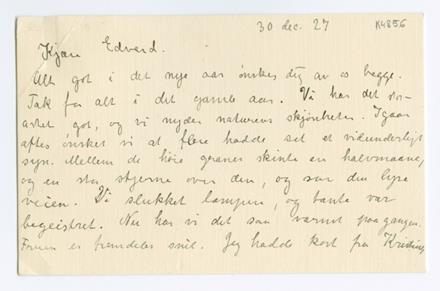 30 dec. 27
K4856
Kjære Edvard.
Alt got i det nye aar ønskes dig av os begge.
Tak for alt i det gamle aar. Vi har det stor-
artet got, og vi nyder naturens skjønheten. Igaar
aftes ønsket vi at flere hadde set et vidunderligt
syn. Mellem de høie graner skinte en halvmaane,
og en stor stjerne over den, og saa den lyse
veien. Vi slukket lampen, og tante var
begeistret. Nu har vi det saa varmt paa gangen.
Fruen er fremdeles snil. Jeg hadde kort fra